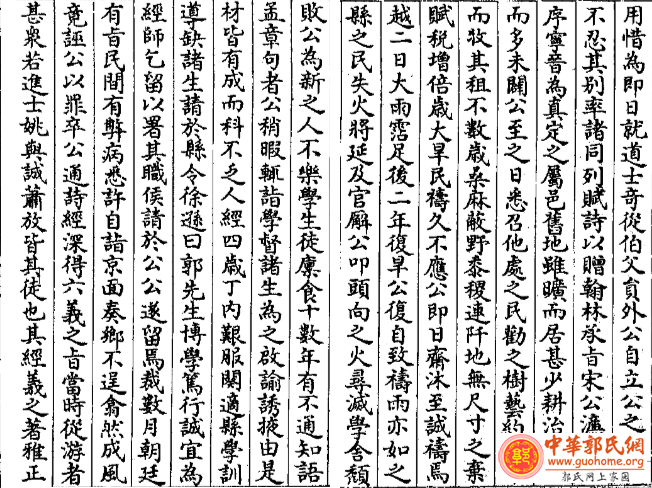 用惜為即日就道士竒從伯父貟外公自立公之
不忍其别率諸同列賦詩以贈翰林承㫖宋公濂
序寧晉為真定之屬邑舊地雖曠而居甚少耕治
而多未闢公至之日悉召他處之民勸之樹藝約
而牧其租不數歳桑麻蔽野黍稷連阡地無尺寸之棄
賦稅增倍歳大旱民禱久不應公即日齋沐至誠禱焉
越二日大雨霑足後二年復旱公復自致禱雨亦如之
縣之民失火將延及官廨公叩頭向之火尋滅學舍頽
敗公為新之人不樂學生徒廩食十數年有不通知語
孟章句者公稍暇輙詣學督諸生為之啟諭誘掖由是
材皆有成而科不乏人經四歳丁内艱服闋適縣學訓
導缺諸生請於縣令徐遜曰郭先生博學篤行誠宜為
經師乞留以署其職侯請於公公遂留焉裁數月朝廷
有㫖民間有弊病悉許自詣京面奏鄉不逞翕然成風
竟誣公以罪卒公通詩經深得六義之㫖當時從游者
甚衆若進士姚與誠蕭放皆其徒也其經義之著雅正
中華郭氏網
www.guohome.org
郭氏网上家園